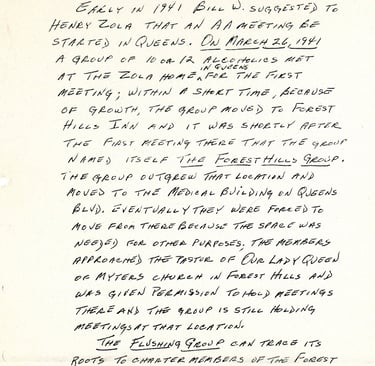 EARLY IN 1941 BILL W. SUGGESTED TO
HENRY ZOLA THAT AN AA MEETING BE
STARTED IN QUEENS. ON MARCH 26, 1941
A GROUP OF 10 OR 12 ALCOHOLICS MET
IN QUEENS
AT THE ZOLA HOME, FOR THE FIRST
MEETING; WITHIN A SHORT TIME, BECAUSE
OF GROWTH, THE GROUP MOVED TO FOREST
HILLS INN AND IT WAS SHORTLY AFTER
THE FIRST MEETING THERE THAT THE GROUP
NAMED ITSELF THE FOREST HILLS GROUP.
THE GROUP OUTGREW THAT LOCATION AND
MOVED TO THE MEDICAL BUILDING ON QUEENS
BLVD. EVENTUALLY THEY WERE FORCED TO
MOVE FROM THERE BECAUSE THE SPACE WAS
NEEDED FOR OTHER PURPOSES. THE MEMBERS
APPROACHED THE PASTOR OF OUR LADY QUEEN
OF MYTERS CHURCH IN FOREST HILLS AND
WAS GIVEN PERMISSION TO HOLD MEETINGS
THERE AND THE GROUP IS STILL HOLDING
MEETINGS AT THAT LOCATION.
THE FLUSHING GROUP CAN TRACE ITS
ROOTS TO CHARTER MEMBERS OF THE FOREST